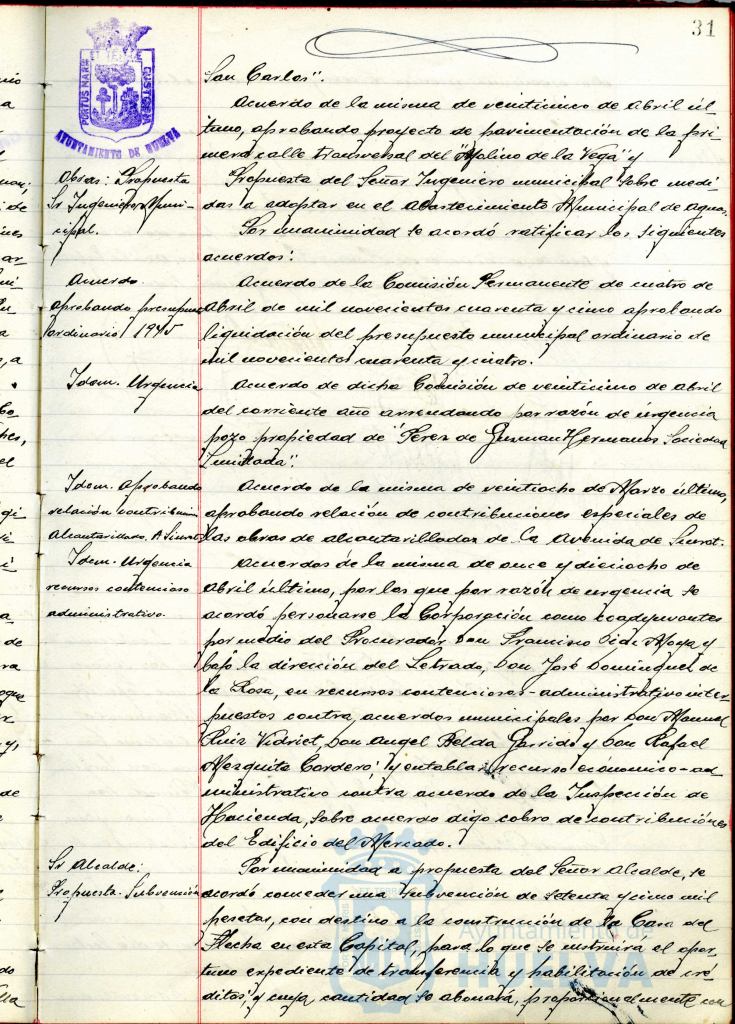 31
PORTUS MARIS ET TERRE CUSTODIA
AYUNTAMIENTO DE HUELVA
San Carlos".
Acuerdo de la misma de veinticinco de Abril úl-
timo, aprobando proyecto de pavimentación de la pri-
mera calle transversal del "Molino de la Vega" y
Obras: Propuesta
Sr Ingeniero Muni-
cipal.
Propuesta del Señor Ingeniero municipal sobre medi-
das a adoptar en el abastecimiento Municipal de aguas.
Por unanimidad se acordó ratificar los siguientes
acuerdos:
Acuerdo
aprobando presupuesto
ordinario 1945
Acuerdo de la Comisión Permanente de cuatro de
Abril de mil novecientos cuarenta y cinco aprobando
liquidación del presupuesto municipal ordinario de
mil novecientos cuarenta y cuatro.
Idem. Urgencia
Acuerdo de dicha Comisión de veinticinco de Abril
del corriente año arrendando por razón de urgencia
pozo propiedad de "Perez de Guzman Hermanos Sociedad
Limitada".
Idem. Aprobando
relación contribución
Alcantarillado. A Siurot
Acuerdo de la misma de veintiocho de Marzo último,
aprobando relación de contribuciones especiales de
las obras de alcantarillados de la Avenida de Siurot.
Idem. Urgencia
recursos contencioso
administrativo.
Acuerdos de la misma de once y dieciocho de
Abril último, por los que por razón de urgencia se
acordó personarse la Corporación como coadyuvantes
por medio del Procurador Don Francisco Cid Moya y
bajo la dirección del Letrado, Don José Dominguez de
la Rosa, en recursos contenciosos-administrativo inter-
puestos contra acuerdos municipales por Don Manuel
Ruiz Vidriet, Don Angel Belda Garrido y Don Rafael
Mezquita Cordero; y entablar recurso económico-ad-
ministrativo contra acuerdo de la Inspección de
Hacienda, sobre acuerdo digo cobro de contribuciónes
del Edificio del Mercado.
Sr Alcalde:
Propuesta. Subvención
Por unanimidad a propuesta del Señor Alcalde, se
acordó conceder una subvención de setenta y cinco mil
pesetas, con destino a la construcción de la Casa del
Flecha en esta Capital, para lo que se instruirá el opor-
tuno expediente de transferencia y habilitación de cré-
ditos y cuya cantidad se abonará, proporcionalmente con
Ayuntamiento de
HUELVA